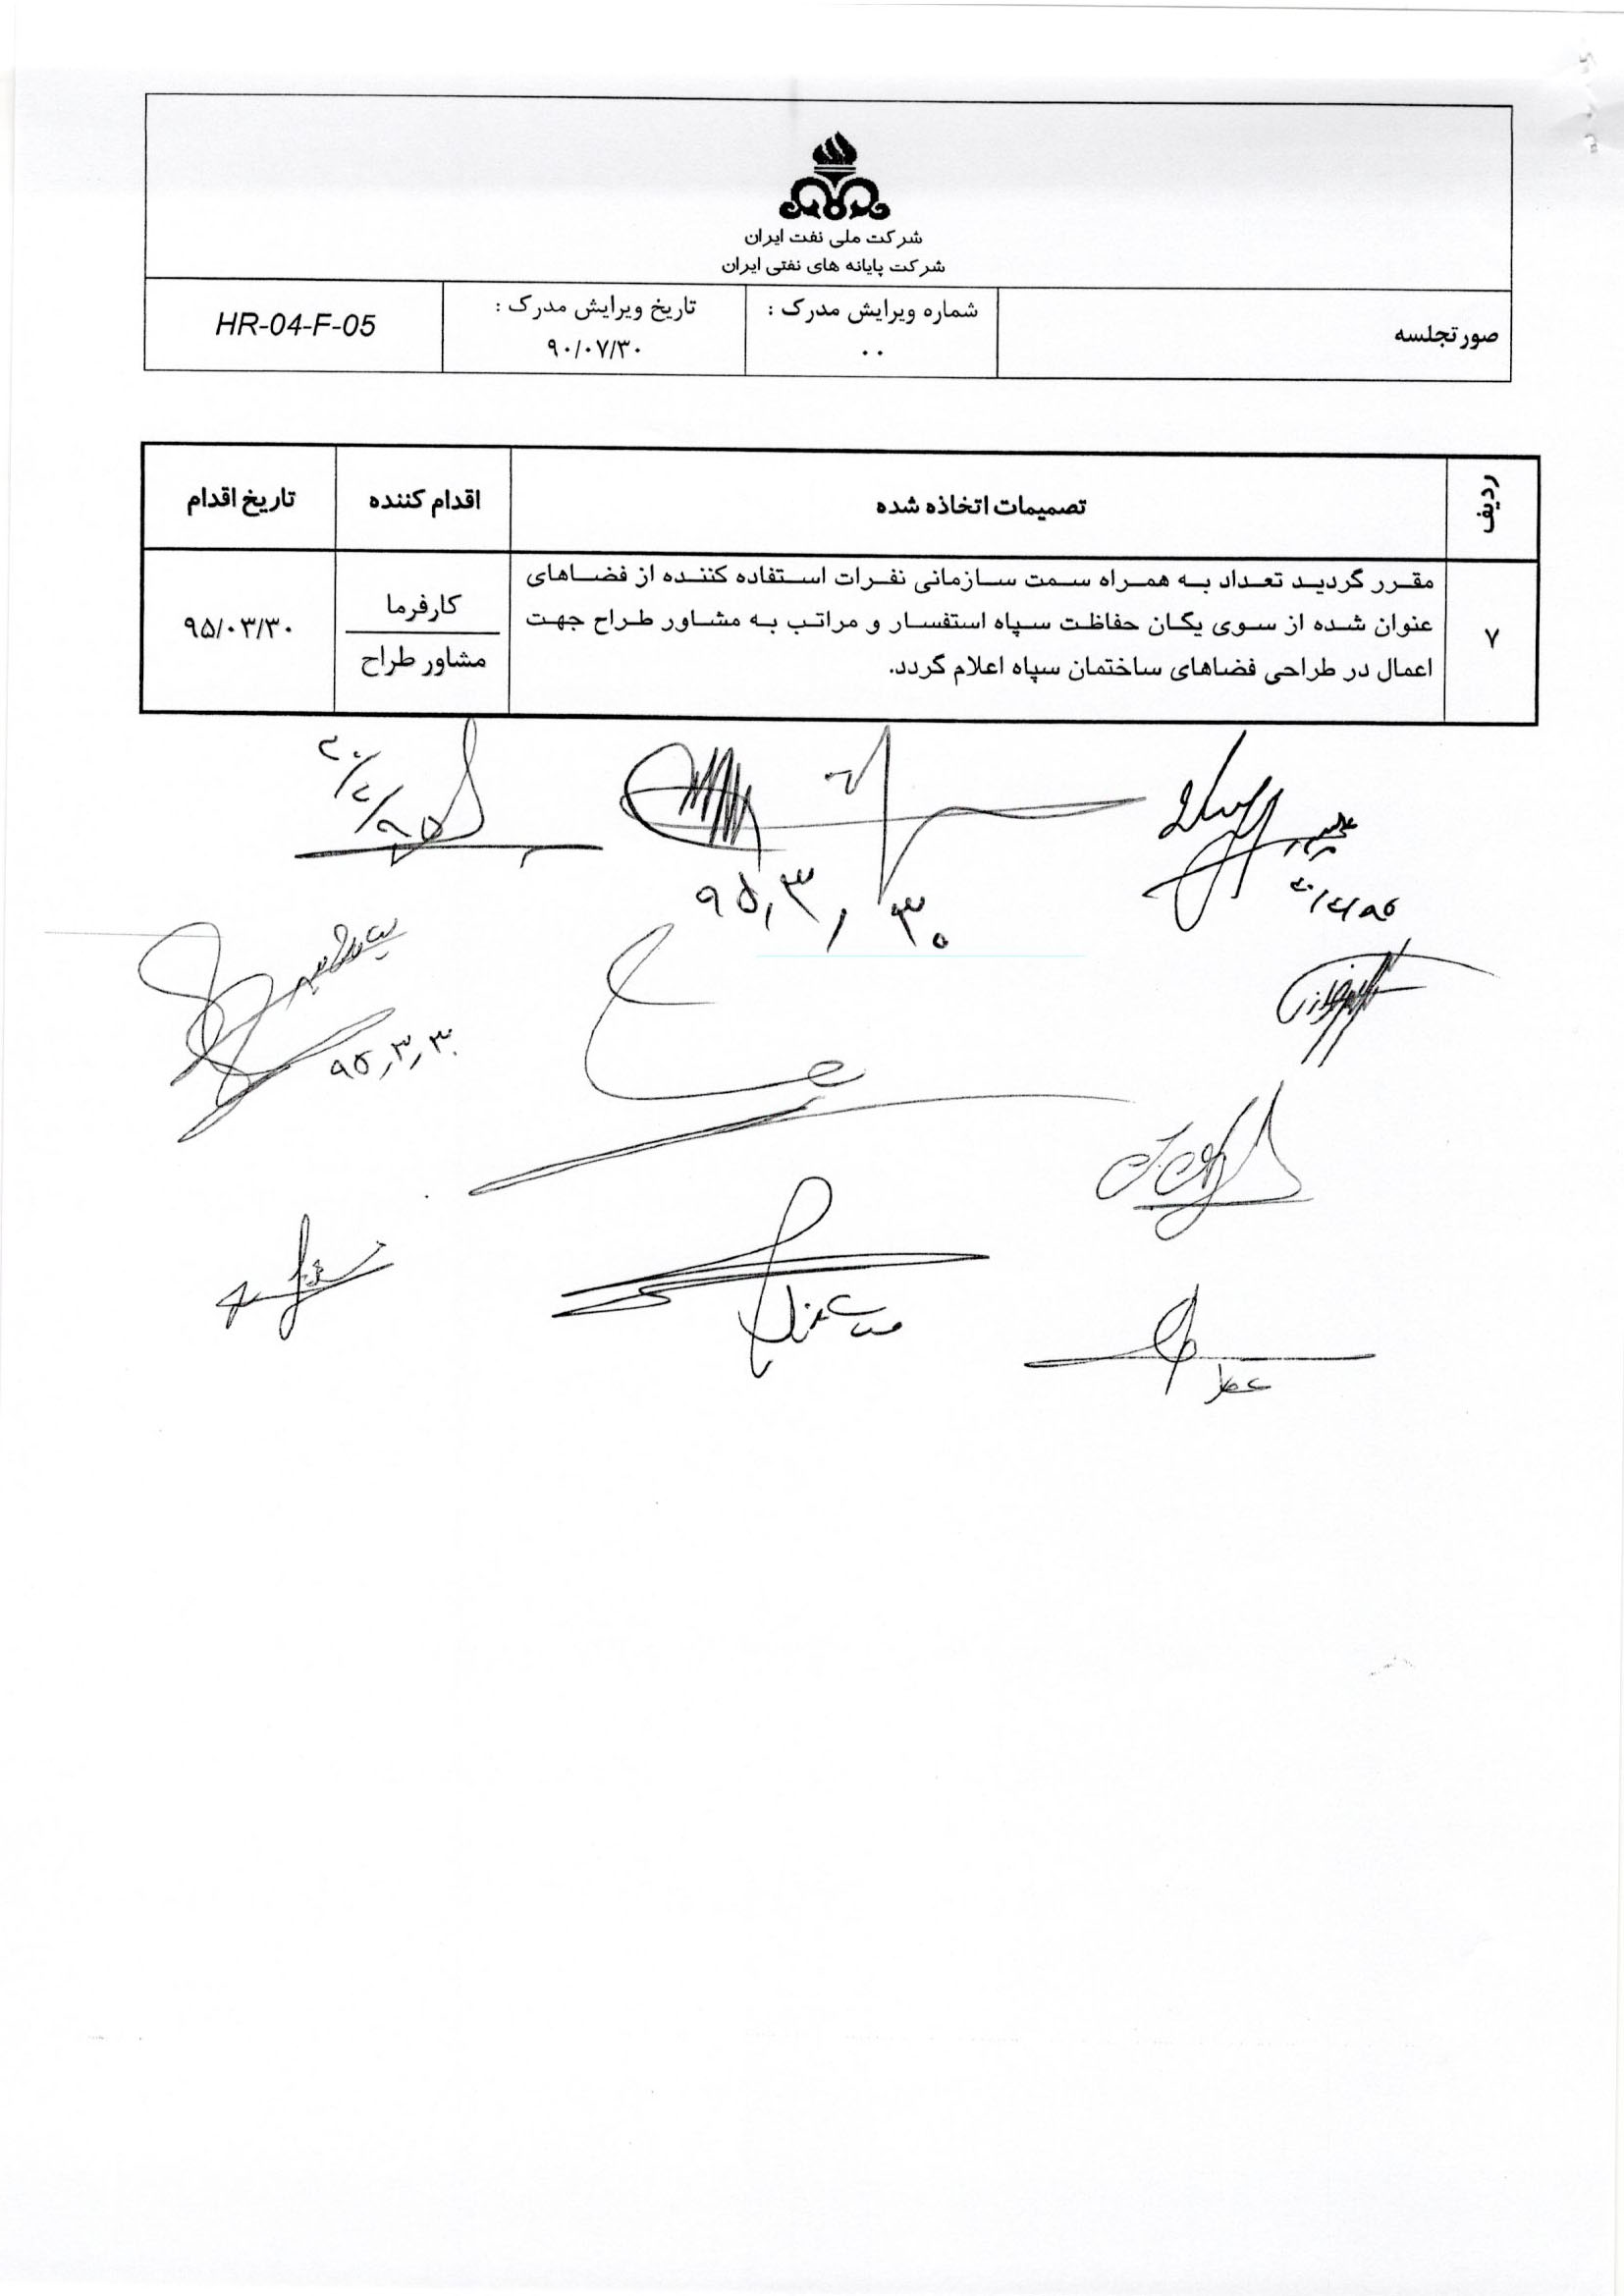 شرکت ملی نفت ایران
شرکت پایانه های نفتی ایران
صورتجلسه
شماره ویرایش مدرک :
۰۰
تاریخ ویرایش مدرک :
۹۰/۰۷/۳۰
HR-04-F-05
ردیف
تصمیمات اتخاذه شده
اقدام کننده
تاریخ اقدام
۷
مقرر گردید تعداد به همراه سمت سازمانی نفرات استفاده کننده از فضاهای
عنوان شده از سوی یگان حفاظت سپاه استفسار و مراتب به مشاور طراح جهت
اعمال در طراحی فضاهای ساختمان سپاه اعلام گردد.
کارفرما
مشاور طراح
۹۵/۰۳/۳۰
۹۵,۳,۳۰
۹۵,۳,۳۰